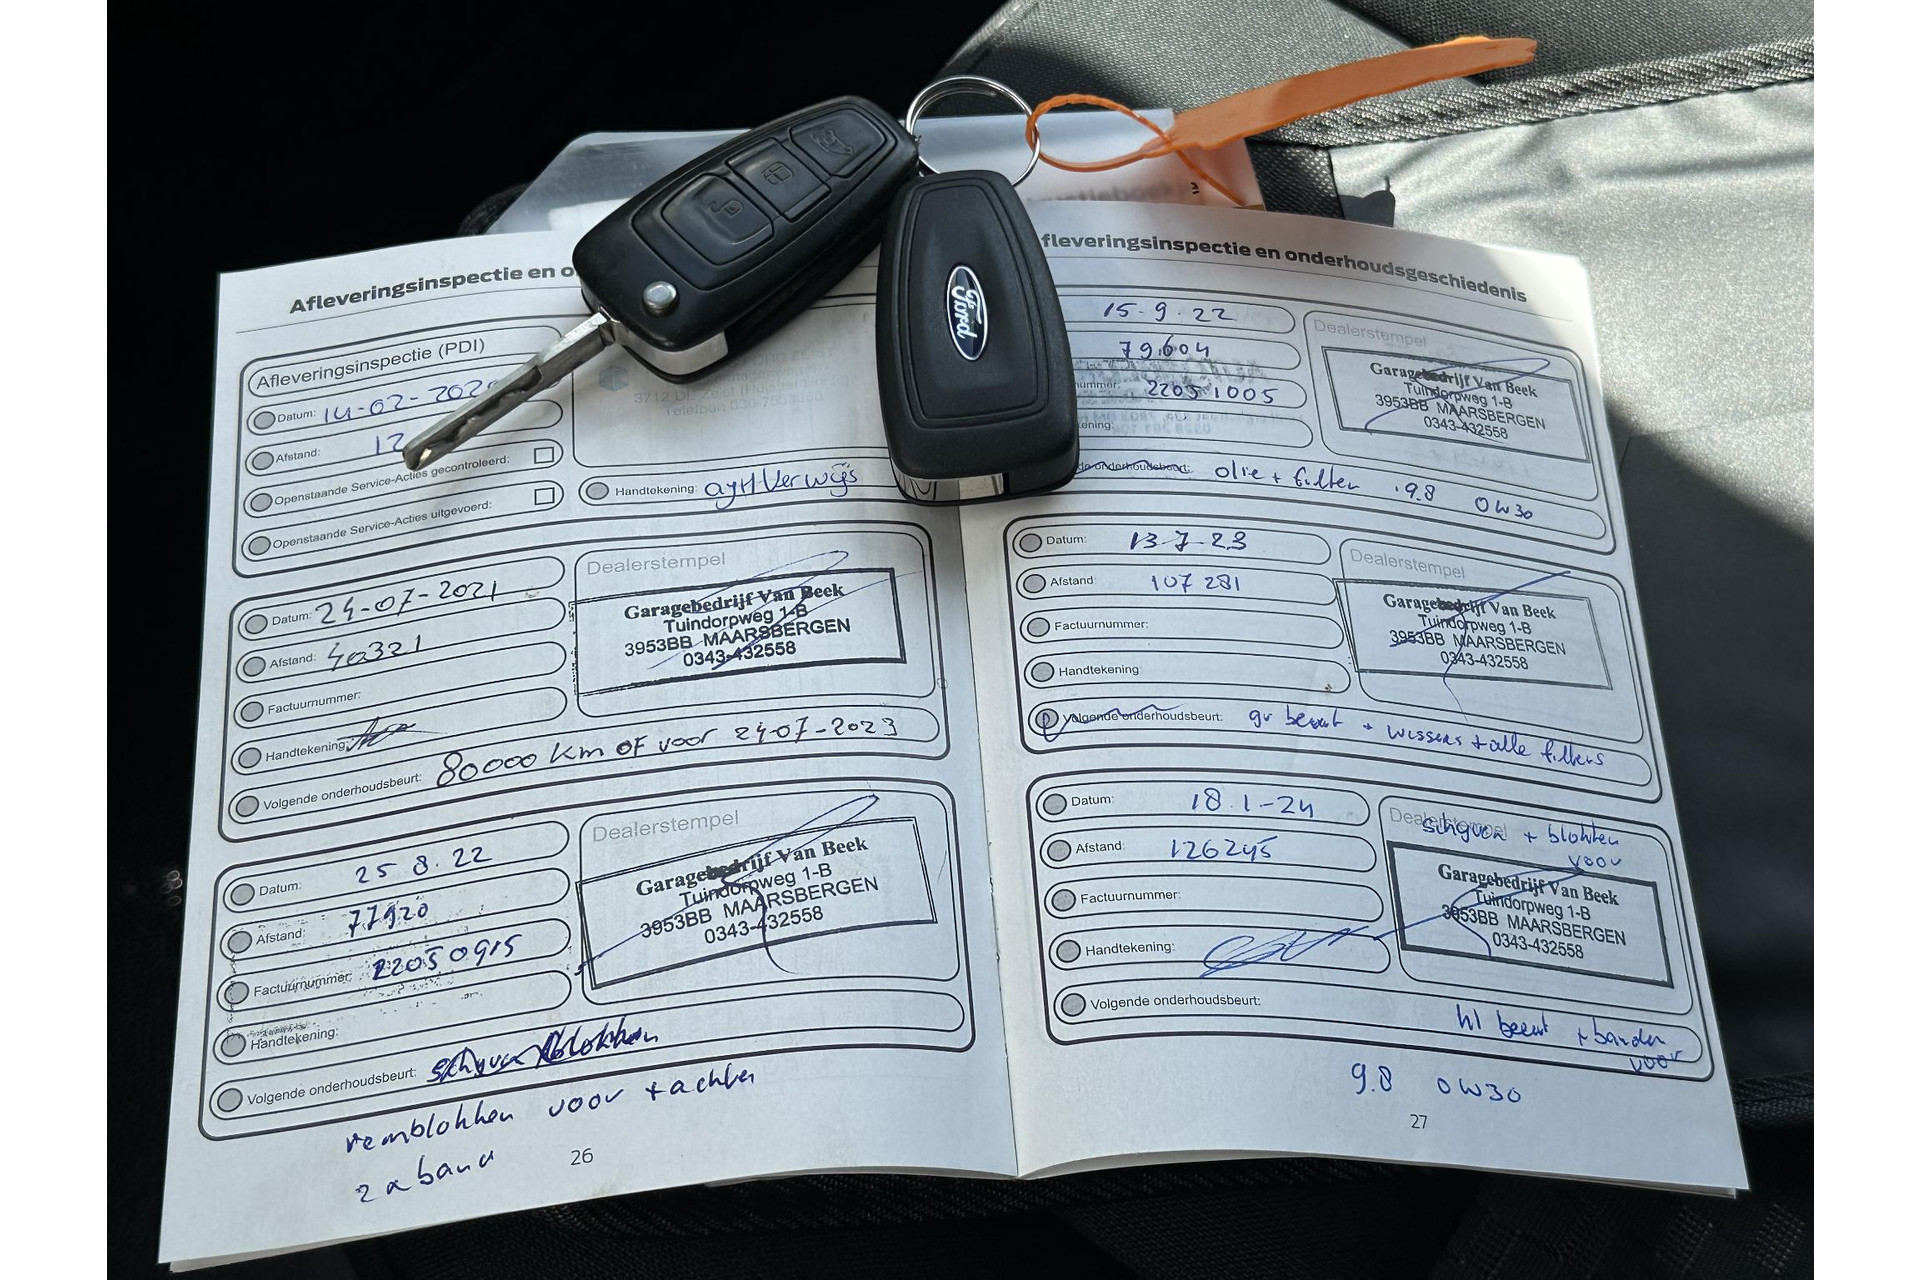 Afleveringsinspectie en o
Afleveringsinspectie (PDI)
Datum: 14-02-202
Afstand: 12
Openstaande Service-Acties gecontroleerd:
Openstaande Service-Acties uitgevoerd:
3712
Telefoon
Handtekening:
Datum: 24-07-2021
Afstand: 40321
Factuurnummer:
Handtekening:
Volgende onderhoudsbeurt: 80000 km of voor 24-07-2023
Dealerstempel
Garagebedrijf Van Beek
Tuindorpweg 1-B
3953BB MAARSBERGEN
0343-432558
Datum: 25 8. 22
Afstand: 77920
Factuurnummer: 22050915
Handtekening:
Volgende onderhoudsbeurt: schyven blokken
remblokken voor + achter
2 a band
Dealerstempel
Garagebedrijf Van Beek
Tuindorpweg 1-B
3953BB MAARSBERGEN
0343-432558
26
Ford
fleveringsinspectie en onderhoudsgeschiedenis
15-9-22
79.604
nummer: 22051005
ening:
de onderhoudsbeurt: olie + filter 9.8 0W30
Dealerstempel
Garagebedrijf Van Beek
Tuindorpweg 1-B
3953BB MAARSBERGEN
0343-432558
Datum: 13-7-23
Afstand: 107281
Factuurnummer:
Handtekening:
Volgende onderhoudsbeurt: gr beurt + wissers + alle filters
Dealerstempel
Garagebedrijf Van Beek
Tuindorpweg 1-B
3953BB MAARSBERGEN
0343-432558
Datum: 18.1-24
Afstand: 126245
Factuurnummer:
Handtekening:
Volgende onderhoudsbeurt: kl beurt + banden
voor
9.8 0W30
Dealerstempel
schyven + blokken
voor
Garagebedrijf Van Beek
Tuindorpweg 1-B
3953BB MAARSBERGEN
0343-432558
27